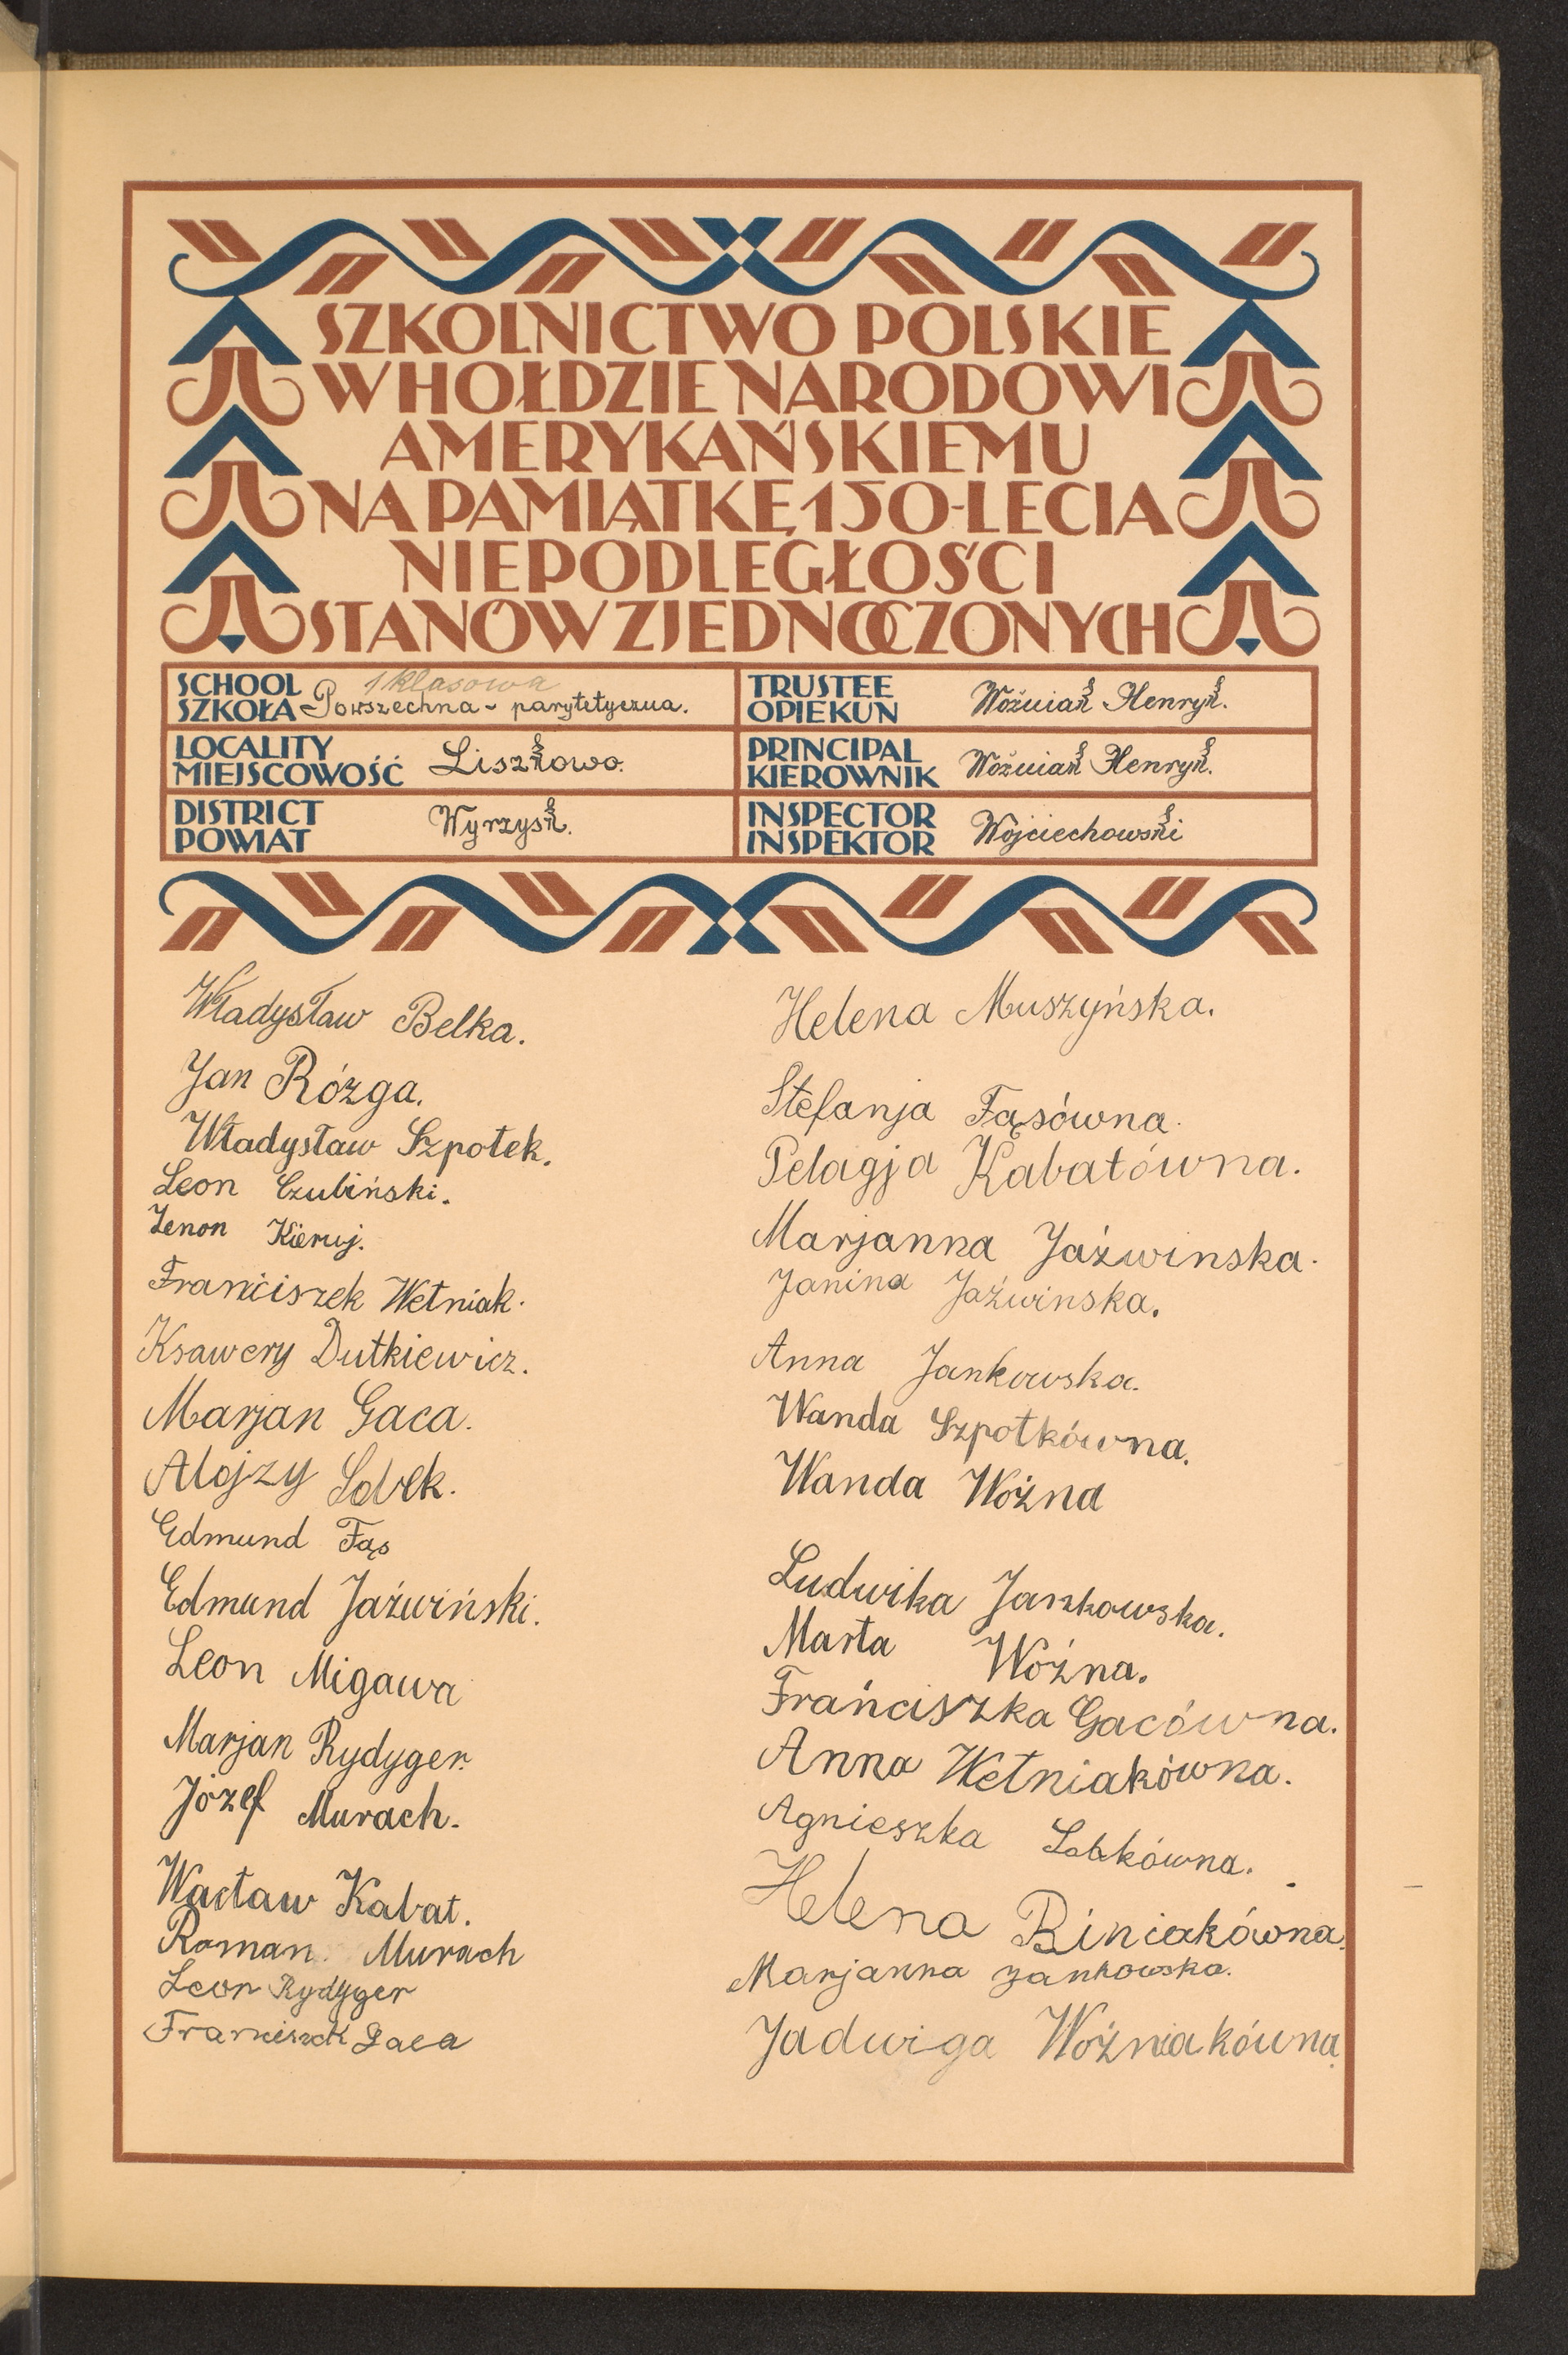 SZKOLNICTWO POLSKIE
W HOŁDZIE NARODOWI
AMERYKAŃSKIEMU
NA PAMIĄTKĘ 150-LECIA
NIEPODLEGŁOŚCI
STANÓW ZJEDNOCZONYCH
SCHOOL
SZKOŁA
1 klasowa
Powszechna - parytetyczna.
TRUSTEE
OPIEKUN
Woźniak Henryk.
LOCALITY
MIEJSCOWOŚĆ
Liszkowo.
PRINCIPAL
KIEROWNIK
Woźniak Henryk.
DISTRICT
POWIAT
Wyrzysk.
INSPECTOR
INSPEKTOR
Wojciechowski
Władysław Belka.
Jan Rózga.
Władysław Szpotek.
Leon Czubiński.
Zenon Kieruj.
Franciszek Wetniak.
Ksawery Dutkiewicz.
Marjan Gaca.
Alojzy Sobek.
Edmund Fąs
Edmund Jaźwiński.
Leon Migawa
Marjan Rydyger.
Józef Murach.
Wacław Kabat.
Roman Murach
Leon Rydyger
Franciszek Gaca
Helena Muszyńska.
Stefanja Fąsówna.
Pelagja Kabatówna.
Marjanna Jaźwinska.
Janina Jaźwinska.
Anna Jankowska.
Wanda Szpotkówna.
Wanda Woźna
Ludwika Jankowska.
Marta Woźna.
Franciszka Gacówna.
Anna Wetniakówna.
Agnieszka Sobkówna.
Helena Biniakówna.
Marjanna Jankowska.
Jadwiga Woźniakówna.